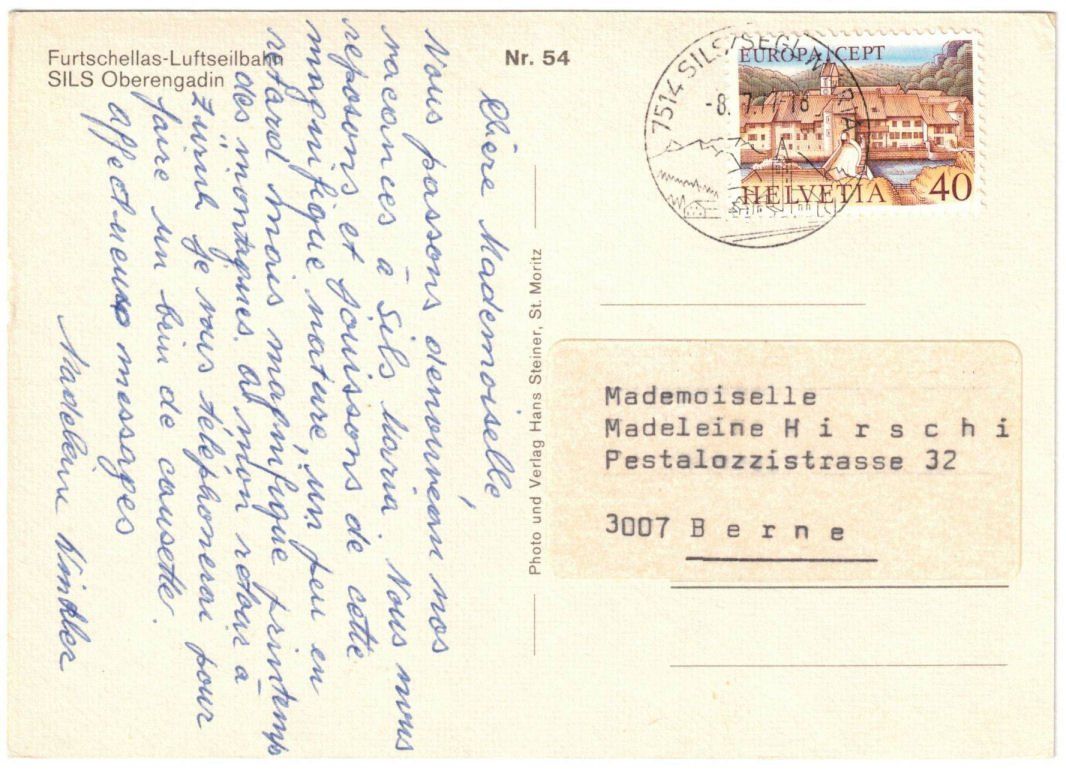 Furtschellas-Luftseilbahn
SILS Oberengadin
Nr. 54
Chère Mademoiselle,
Nous passons de nouveau nos
vacances à Sils Maria. Nous nous
reposons et jouissons de cette
magnifique nature, un peu en
retard mais magnifique printemps
des montagnes. A mon retour à
Zürich je vous téléphonerai pour
faire un brin de causette.
Affectueux messages
Madeleine Winkler
Photo und Verlag Hans Steiner, St. Moritz
7514 SILS/SEGL
-8. 7. -18
EUROPA CEPT
HELVETIA 40
Mademoiselle
Madeleine H i r s c h i
Pestalozzistrasse 32
3007 B e r n e